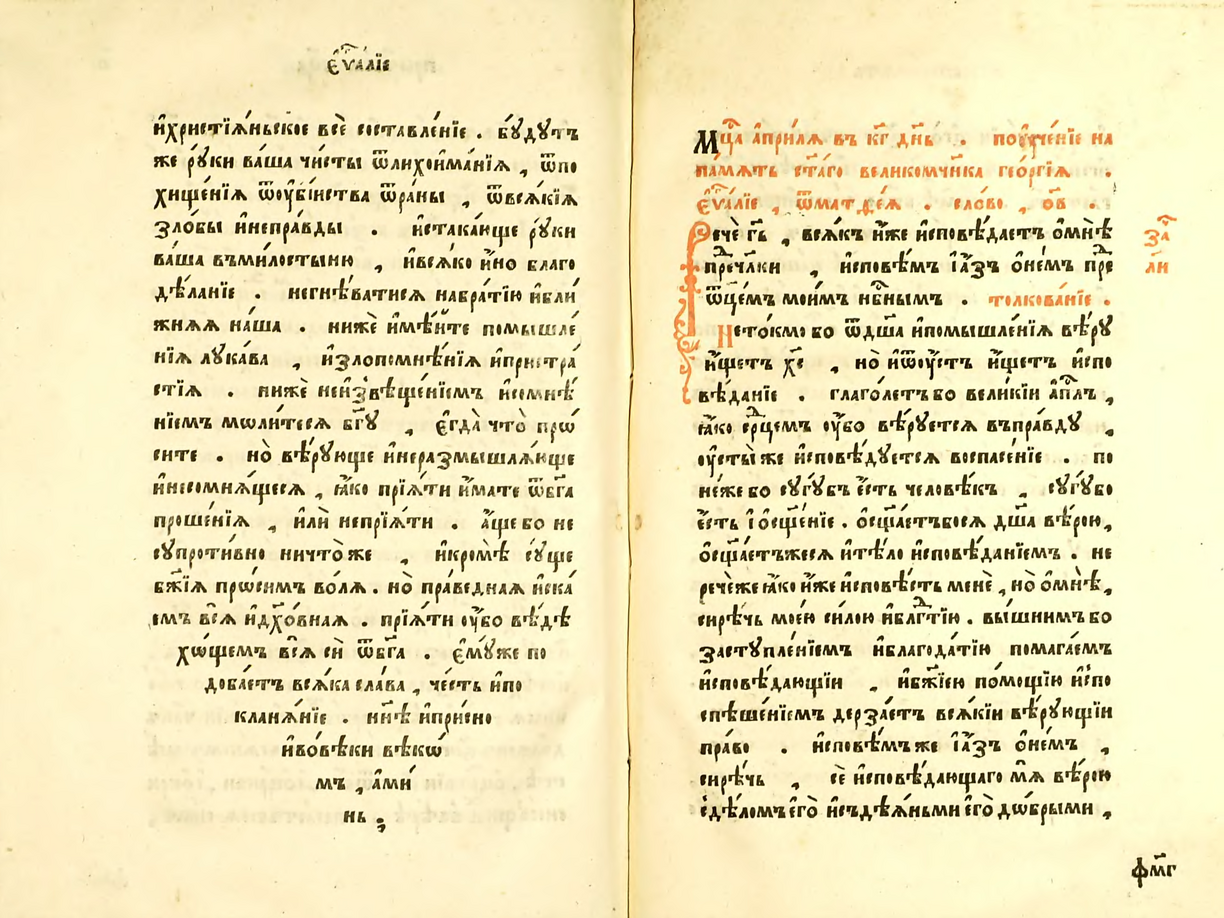 є҆ѵⷢ҇алїе
и҆христїѧ́ньское всѐ составле́нїе . бꙋ́дꙋтъ
же рꙋ́ки ва́ша чи́сты ѿлихои҆ма́нїѧ , ѿпо
хище́нїѧ ѿоу҆бі́иства ѿра́ны , ѿвсѧ́кїѧ
зло́бы и҆непра́вды . и҆стака́юще рꙋ́ки
ва́ша въми́лостыню , и҆всѧ́ко и҆́но благо
дѣ́ланїе . негнѣ́ватисѧ набра́тїю и҆бли́
жнѧѧ на́ша . нижѐ и҆мѣ́ите помышле́
нїѧ лꙋка́ва , и҆злопомнѣ́нїѧ и҆пристра́
стїѧ . нижѐ неи҆звѣ́щенїемъ и҆сомнѣ́
нїемъ мѡли́тесѧ бг҃ꙋ , є҆гда̀ что̀ прѡ́
сите . но̀ вѣ́рꙋюще и҆неразмышлѧ́юще
и҆несомнѧ́щесѧ , ꙗ҆́ко прїѧ́ти и҆́мате ѿбг҃а
проше́нїѧ , и҆лѝ непрїѧ́ти . а҆́ще бо не
сꙋпроти́вно ничто̀же , и҆кромѣ̀ сꙋ́ще
бж҃їѧ прѡ́симъ во́лѧ . но̀ пра́веднаѧ и҆ска́
емъ всѧ̑ и҆дꙋ҇хо́внаѧ . прїѧ́ти оу҆́бо вѣ́дѣ
хѡ́щемъ всѧ̑ сѝ ѿбг҃а . є҆мꙋ́же по
доба́етъ всѧ́ка сла́ва , че́сть и҆по
кланѧ́нїе . нн҃ѣ и҆при́сно
и҆во́вѣки вѣ́кѡ
мъ , а҆ми́
нь ,
Мцⷭ҇а а҆прі́лѧ въ к҃г дн҃ь . поꙋче́нїе на
па́мѧть ст҃а́го великомч҃ника гео́ргїѧ .
є҆ѵⷢ҇а́лїе , ѿматѳе́ѧ . сло́во , о҃в .
Речѐ гⷭ҇ь , всѧ́къ и҆́же и҆сповѣ́даетъ ѡ҆мнѣ̀
преⷣчл҃ки , и҆сповѣ́мъ і҆а҆́зъ о҆не́мъ преⷣ
ѿц҃е́мъ мои́мъ нбⷭ҇нымъ . толкова́нїе .
Нето́кмо бо ѿдш҃а и҆помышле́нїѧ вѣ́рꙋ
и҆́щетъ хⷭ҇е , но̀ и҆ѿоу҆́стъ и҆́щетъ и҆спо
вѣ́данїе . глаго́летъ бо вели́кїи а҆пⷭ҇лъ ,
ꙗ҆́ко срⷣцемъ оу҆́бо вѣ́рꙋетсѧ въпра́вдꙋ ,
оу҆сты̀ же и҆сповѣ́дꙋетсѧ воспасе́нїе . по
не́же бо сꙋгꙋ́бъ є҆́сть человѣ́къ , сꙋгꙋ́бо
є҆́сть і҆ о҆сщ҃е́нїе . о҆сщ҃а́етъбосѧ дш҃а вѣ́рою ,
о҆сщ҃а́етъжесѧ и҆тѣ́ло и҆сповѣ́данїемъ . не
рече́же ꙗ҆́ко и҆́же и҆сповѣ́сть менѐ , но̀ ѡ҆мнѣ̀ ,
си́рѣчь мое́ю си́лою и҆блгⷣтїю . вы́шнимъ бо
застꙋпле́нїемъ и҆благода́тїю помага́емъ
и҆сповѣ́дающїи , и҆бж҃їею по́мощїю и҆спо
спѣше́нїемъ дерза́етъ всѧ́кїи вѣ́рꙋющїи
пра́во . и҆сповѣ́мъ же і҆а҆́зъ о҆не́мъ ,
си́рѣчь , сѐ и҆сповѣ́дающаго мѧ̀ вѣ́рою
сдѣ́ломъ є҆гѡ̀ и҆съдѣѧ́ньми є҆го̀ дѡ́брыми ,
за҃
ли
фм҃г